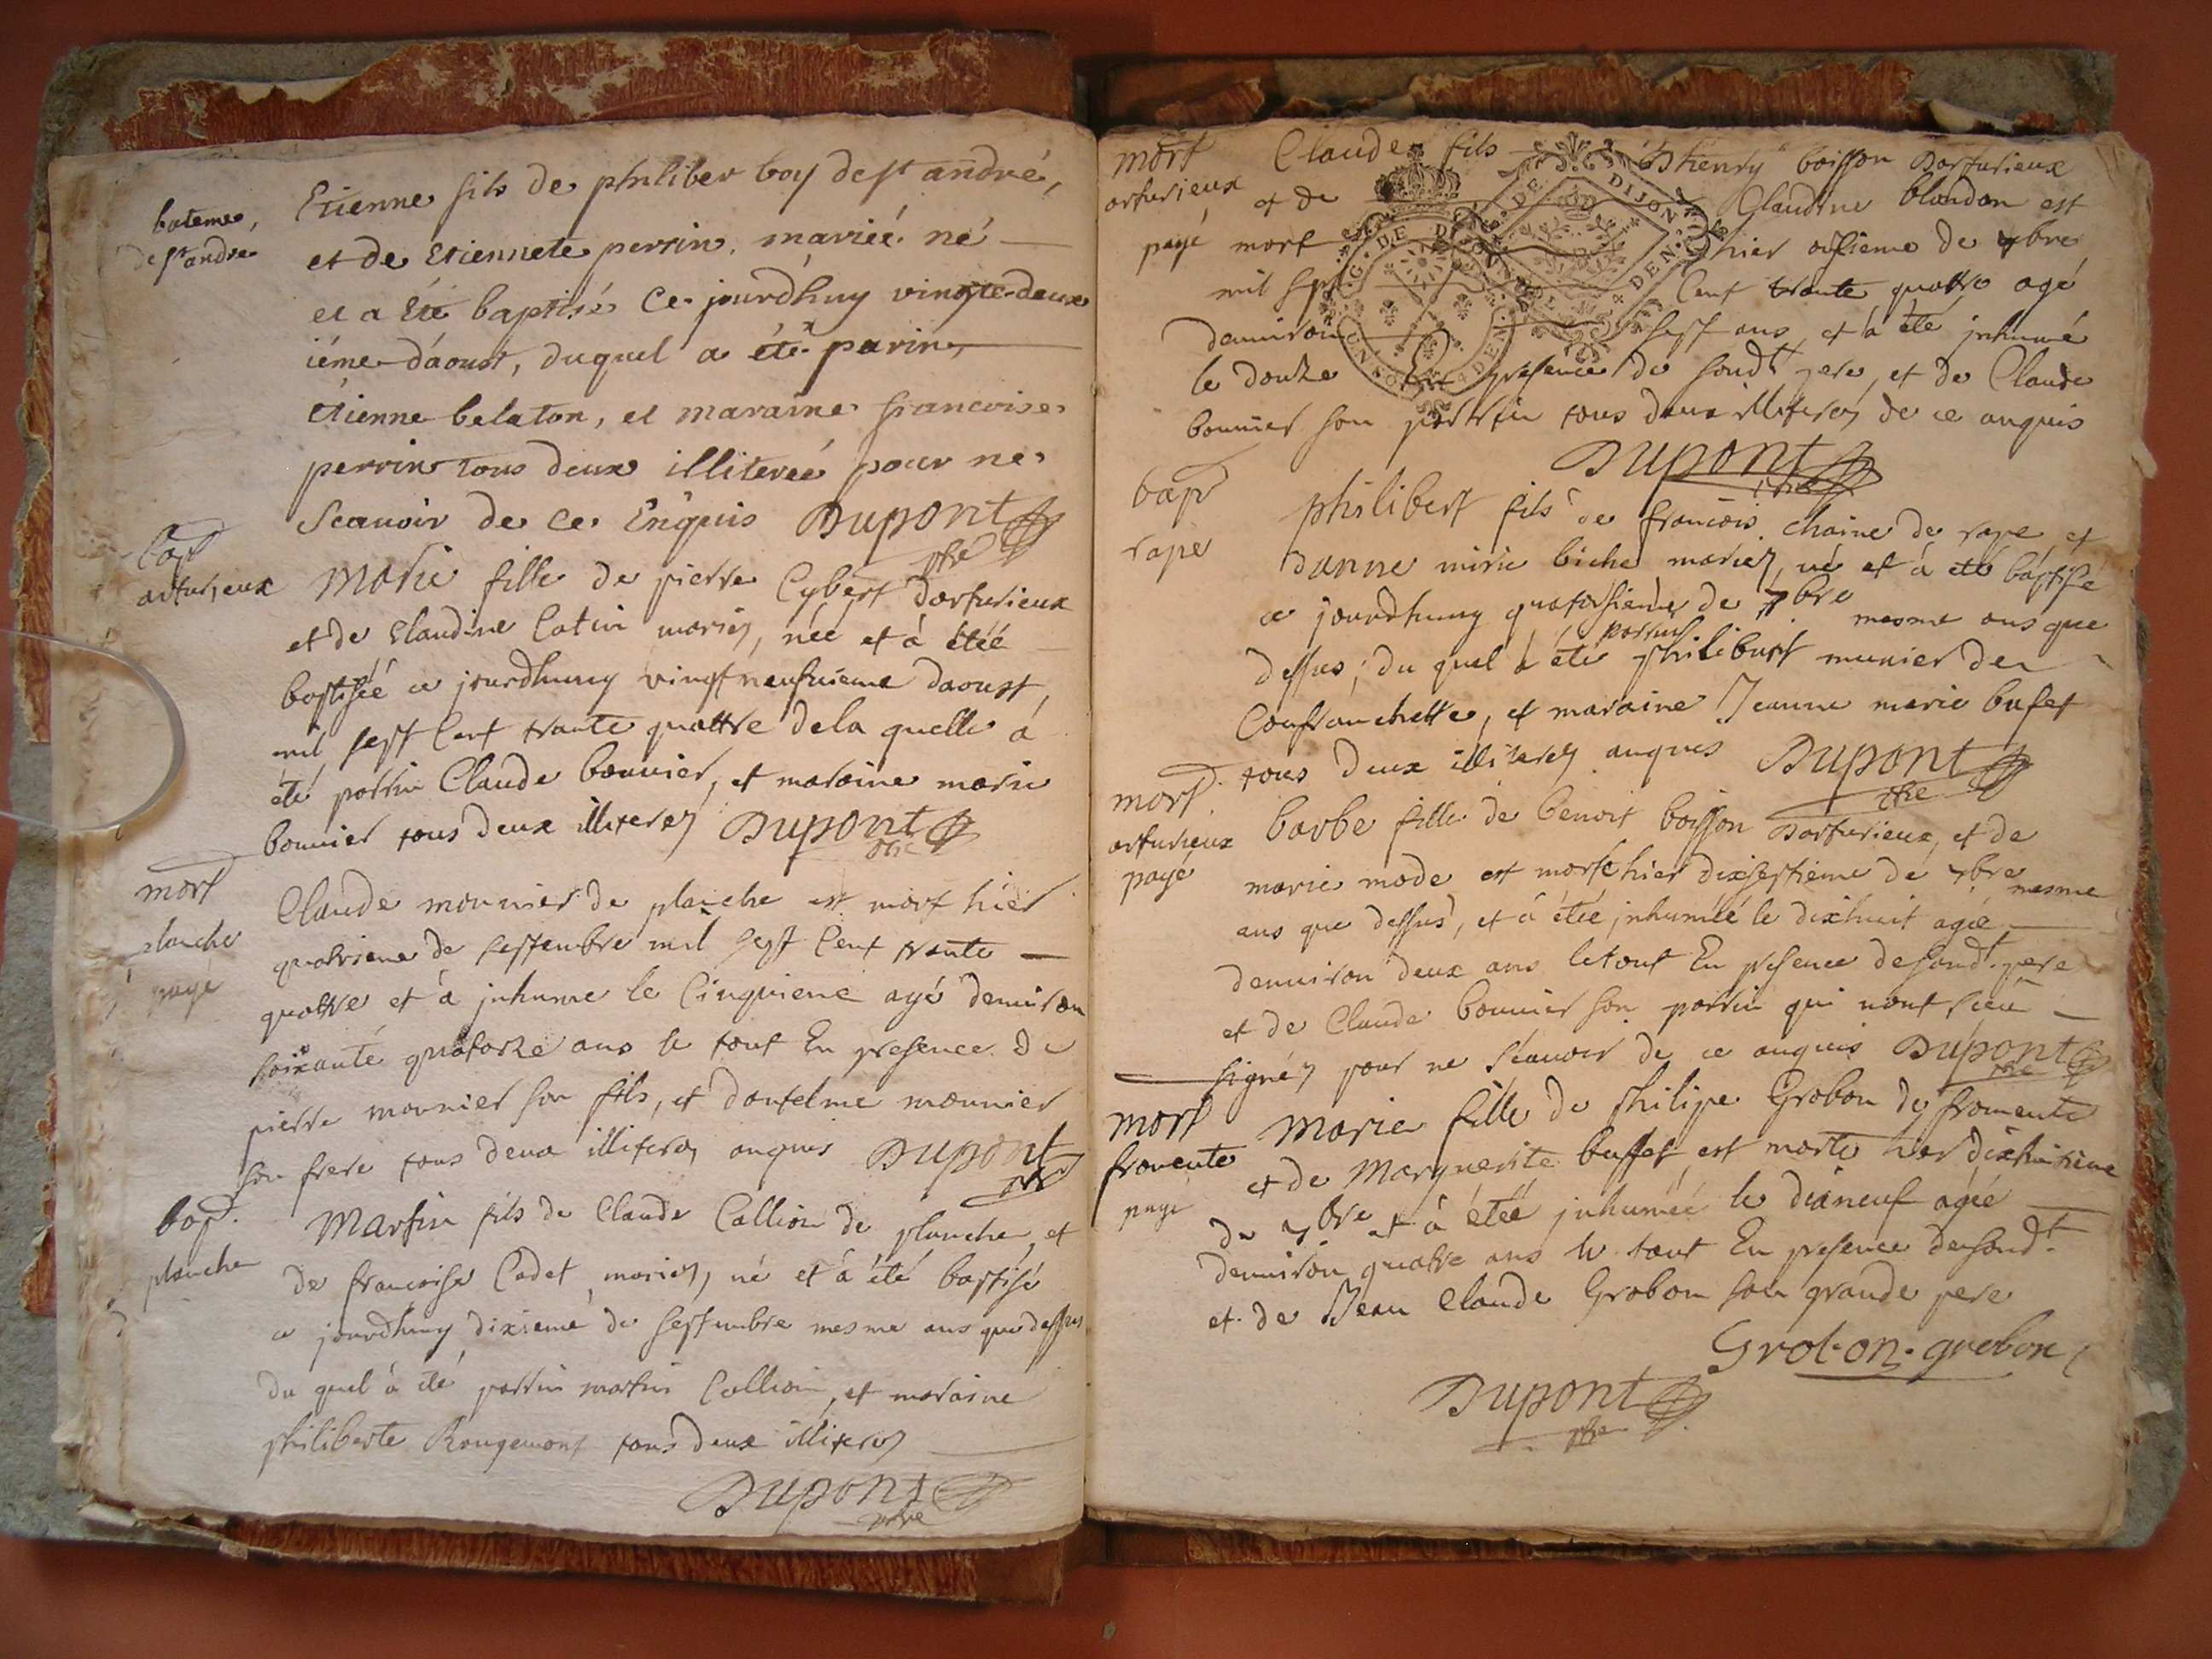 bateme,
de st andre
Etienne fils de philiber boy de st andré,
et de Etiennete perrin, mariéé. né
et a Eté baptisé Ce jourdhuy vingte-deux
iéme d'áoust, duquel a été parin,
étienne belaton, et maraine francoise
perrin tous deux illitereé pour ne
Scauoir de ce Enquis Dupont
ptre
bap
arturieux
Marie fille de pierre Cybert darturieux
et de Claudine Catin mariez, née et á étéé
baptiséé ce jourdhuy vingt neufuieme daoust,
mil sept Cent trante quattre dela quelle á
été parrin Claude bouuier, et maraine marie
bouuier tous deux illiterez Dupont
ptre
mort
planche
payé
Claude mounier de planche est mort hier
quatrieme de septembre mil sept Cent trante
quattre et á inhume le Cinquieme agé denuiron
soixante quatorze ans le tout En presence de
pierre mounier son fils, et dantelme mounier
son frere tous deux illiterez anquis Dupont
ptre
bap.
planche
Martin fils de Claude Callion de planche, et
de francoise Cadet, mariez, né et á été baptisé
ce jourdhuy dixieme de septembre mesme ans que dessus
du quel á été parrin martin Callion, et maraine
philiberte Rougemont tous deux illiterez
Dupont
ptre
mort
arturieux
payé
Claude fils d'henry boisson Darturieux
et de Claudine blondon est
mort hier onsieme de 7bre
mil sept Cent trante quattre agé
denuiron sept ans et á été inhumé
le douze En presence de sondt pere, et de Claude
bouuier son parrin tous deux illiterez de ce anquis
Dupont
ptre
bap
rape
philibert fils de francois chaine de rape et
danne mirie biche mariez, né et á été báptisé
ce jourdhuy quatorsieme de 7bre mesme ans que
dessus; du quel á été parrin philibert munier de
Confranchette, et maraine Jeanne marie bufet
tous deux illiterez anquis Dupont
ptre
mort
arturieux
payé
barbe fille de benoit boisson Darturieux, et de
marie mode est morte hier dixseptieme de 7bre mesme
ans que dessus, et á étéé inhuméé le dixhuit agéé
denuiron deux ans le tout En presence de sondt pere
et de Claude bouuier son parrin qui nont sceu
signéz pour ne scauoir de ce anquis Dupont
ptre
mort
fromente
payé
Marie fille de philipe Grobon de fromente
et de Marguerite buffet est morte hier dixhuitieme
de 7bre et á étéé inhuméé le dixneuf agéé
denuiron quatre ans le tout En presence de sondt.
et de Jean Claude Grobon son grande pere
Grobon. grobon
Dupont
ptre